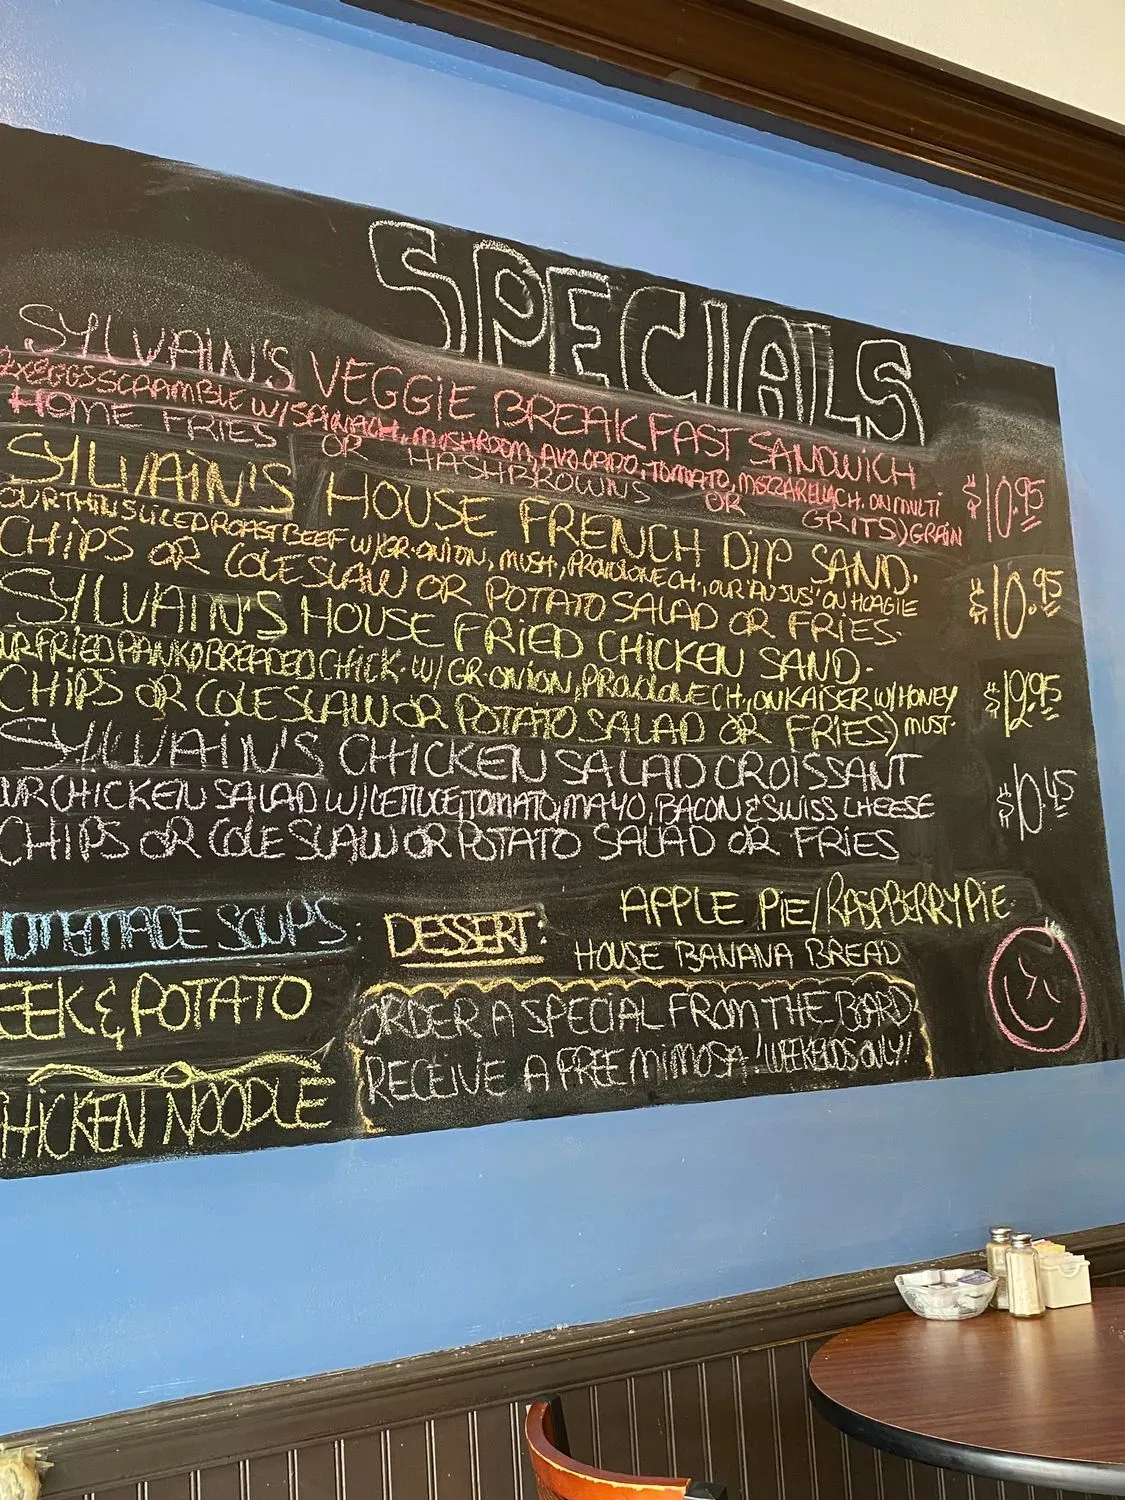 SPECIALS
SYLVAIN'S VEGGIE BREAKFAST SANDWICH
2XEGGSSCRAMBLE W/SPINACH, MUSHROOM, AVOCADO, TOMATO, MOZZARELLACH. ON MULTI GRAIN $10.95
HOME FRIES OR HASHBROWNS OR GRITS)
SYLVAIN'S HOUSE FRENCH DIP SAND.
OUR THIN SLICED ROAST BEEF W/GR.ONION, MUSH., PROVOLONE CH., OUR "AU JUS" ON HOAGIE $10.95
CHIPS OR COLESLAW OR POTATO SALAD OR FRIES.
SYLVAIN'S HOUSE FRIED CHICKEN SAND.
UR FRIED PANKO BREADED CHICK. W/ GR.ONION, PROVOLONE CH., ON KAISER W/HONEY MUST. $12.95
CHIPS OR COLESLAW OR POTATO SALAD OR FRIES)
SYLVAIN'S CHICKEN SALAD CROISSANT
UR CHICKEN SALAD W/LETTUCE, TOMATO, MAYO, BACON & SWISS CHEESE $10.45
CHIPS OR COLESLAW OR POTATO SALAD OR FRIES
OMEMADE SOUPS:
EEK & POTATO
HICKEN NOODLE
DESSERT:
APPLE PIE/RASPBERRY PIE
HOUSE BANANA BREAD
ORDER A SPECIAL FROM THE BOARD
RECEIVE A FREE MIMOSA 'WEEKENDS ONLY!